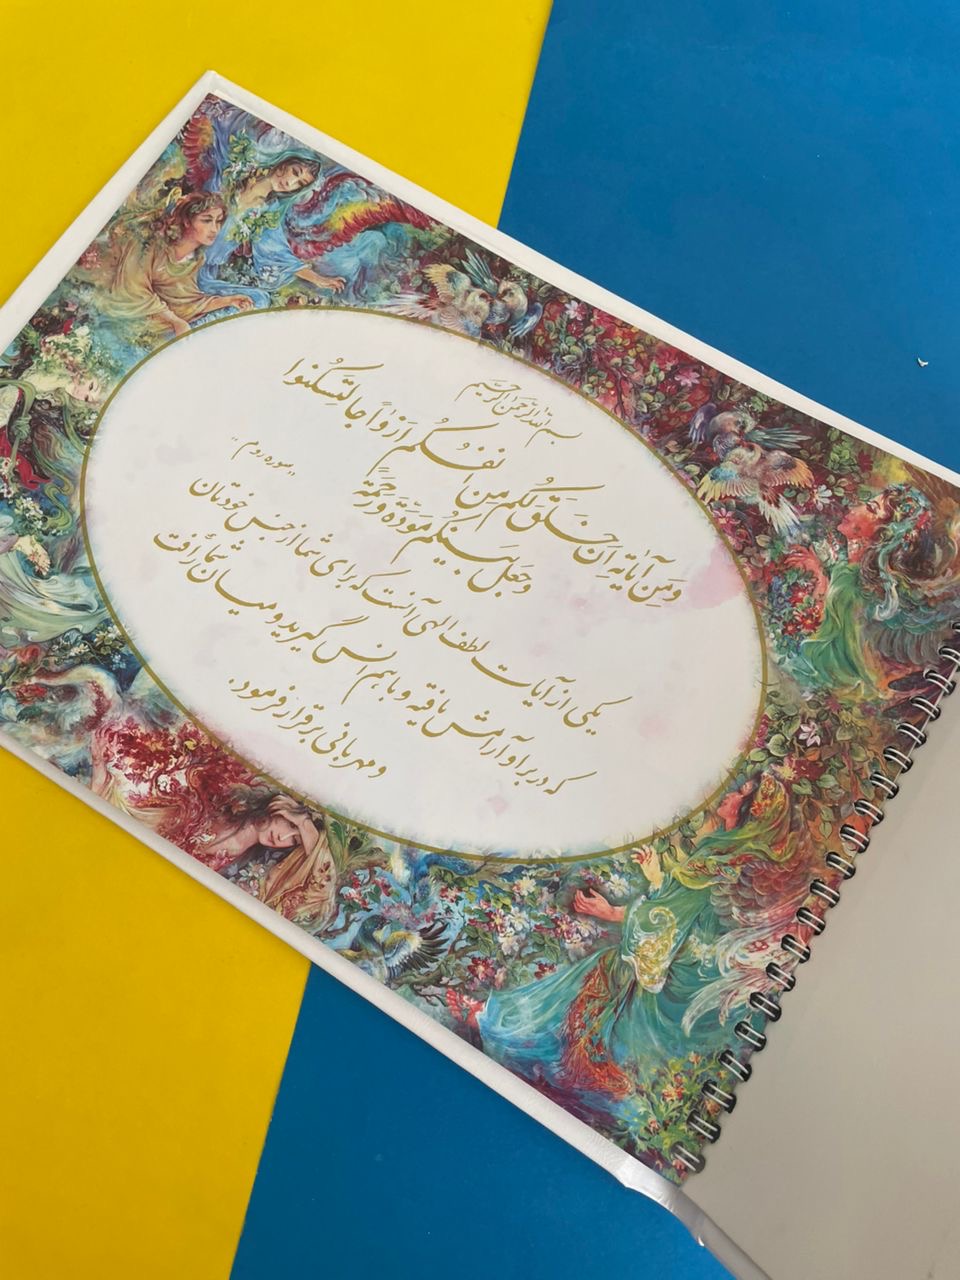 بسم الله الرحمن الرحیم
وَمِن آیاتِهِ اَن خَلَقَ لَکُم مِن اَنفُسِکُم اَزواجاً لِتَسکُنوا
وَجَعَلَ بَینَکُم مَوَدَّةً وَرَحمَةً
"سوره روم"
یکی از آیات لطف الهی آنست که برای شما از جنس خودتان
که در بر او آرامش یافته و با هم انس گیرید و میان شما رافت
و مهربانی برقرار فرمود.